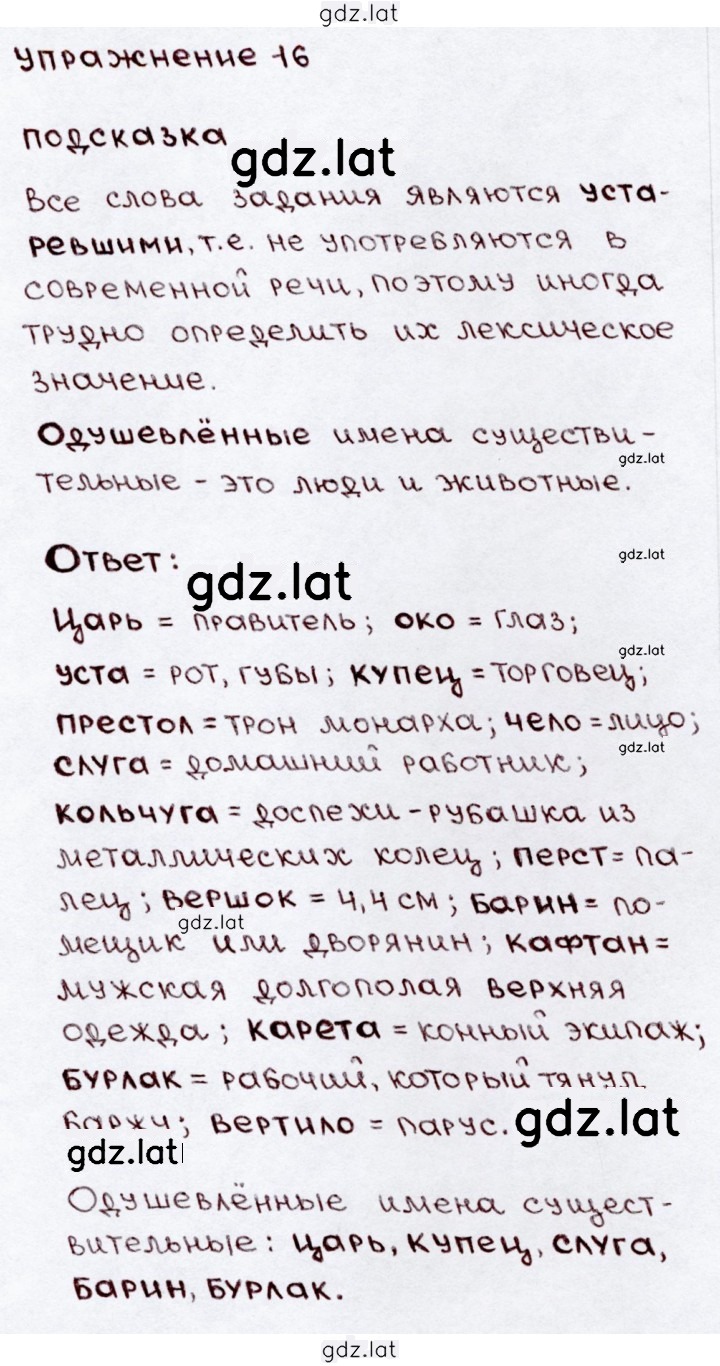 gdz.lat
Упражнение 16
Подсказка
gdz.lat
Все слова задания являются уста-
ревшими, т.е. не употребляются в
современной речи, поэтому иногда
трудно определить их лексическое
значение.
Одушевлённые имена существи-
gdz.lat
тельные - это люди и животные.
Ответ:
gdz.lat
gdz.lat
Царь = правитель; око = глаз;
gdz.lat
уста = рот, губы; купец = торговец;
престол = трон монарха; чело = лицо;
gdz.lat
слуга = домашний работник;
кольчуга = доспехи - рубашка из
металлических колец; перст = па-
лец; вершок = 4,4 см; барин = по-
gdz.lat
мещик или дворянин; кафтан =
мужская долгополая верхняя
одежда; карета = конный экипаж;
бурлак = рабочий, который тянул
баржу; вертило = парус.
gdz.lat
gdz.lat
Одушевлённые имена сущест-
вительные: царь, купец, слуга,
барин, бурлак.
gdz.lat